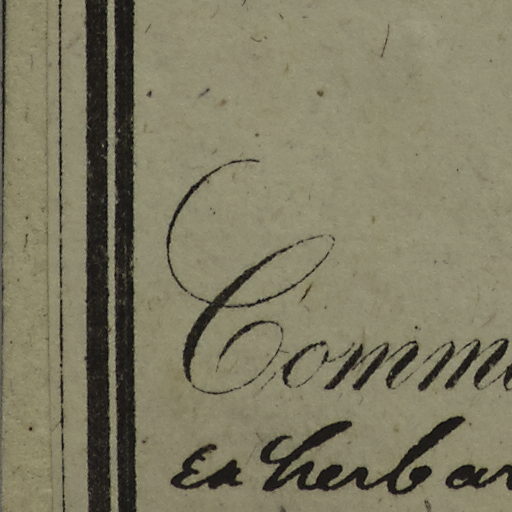 Comm
Ex herbar